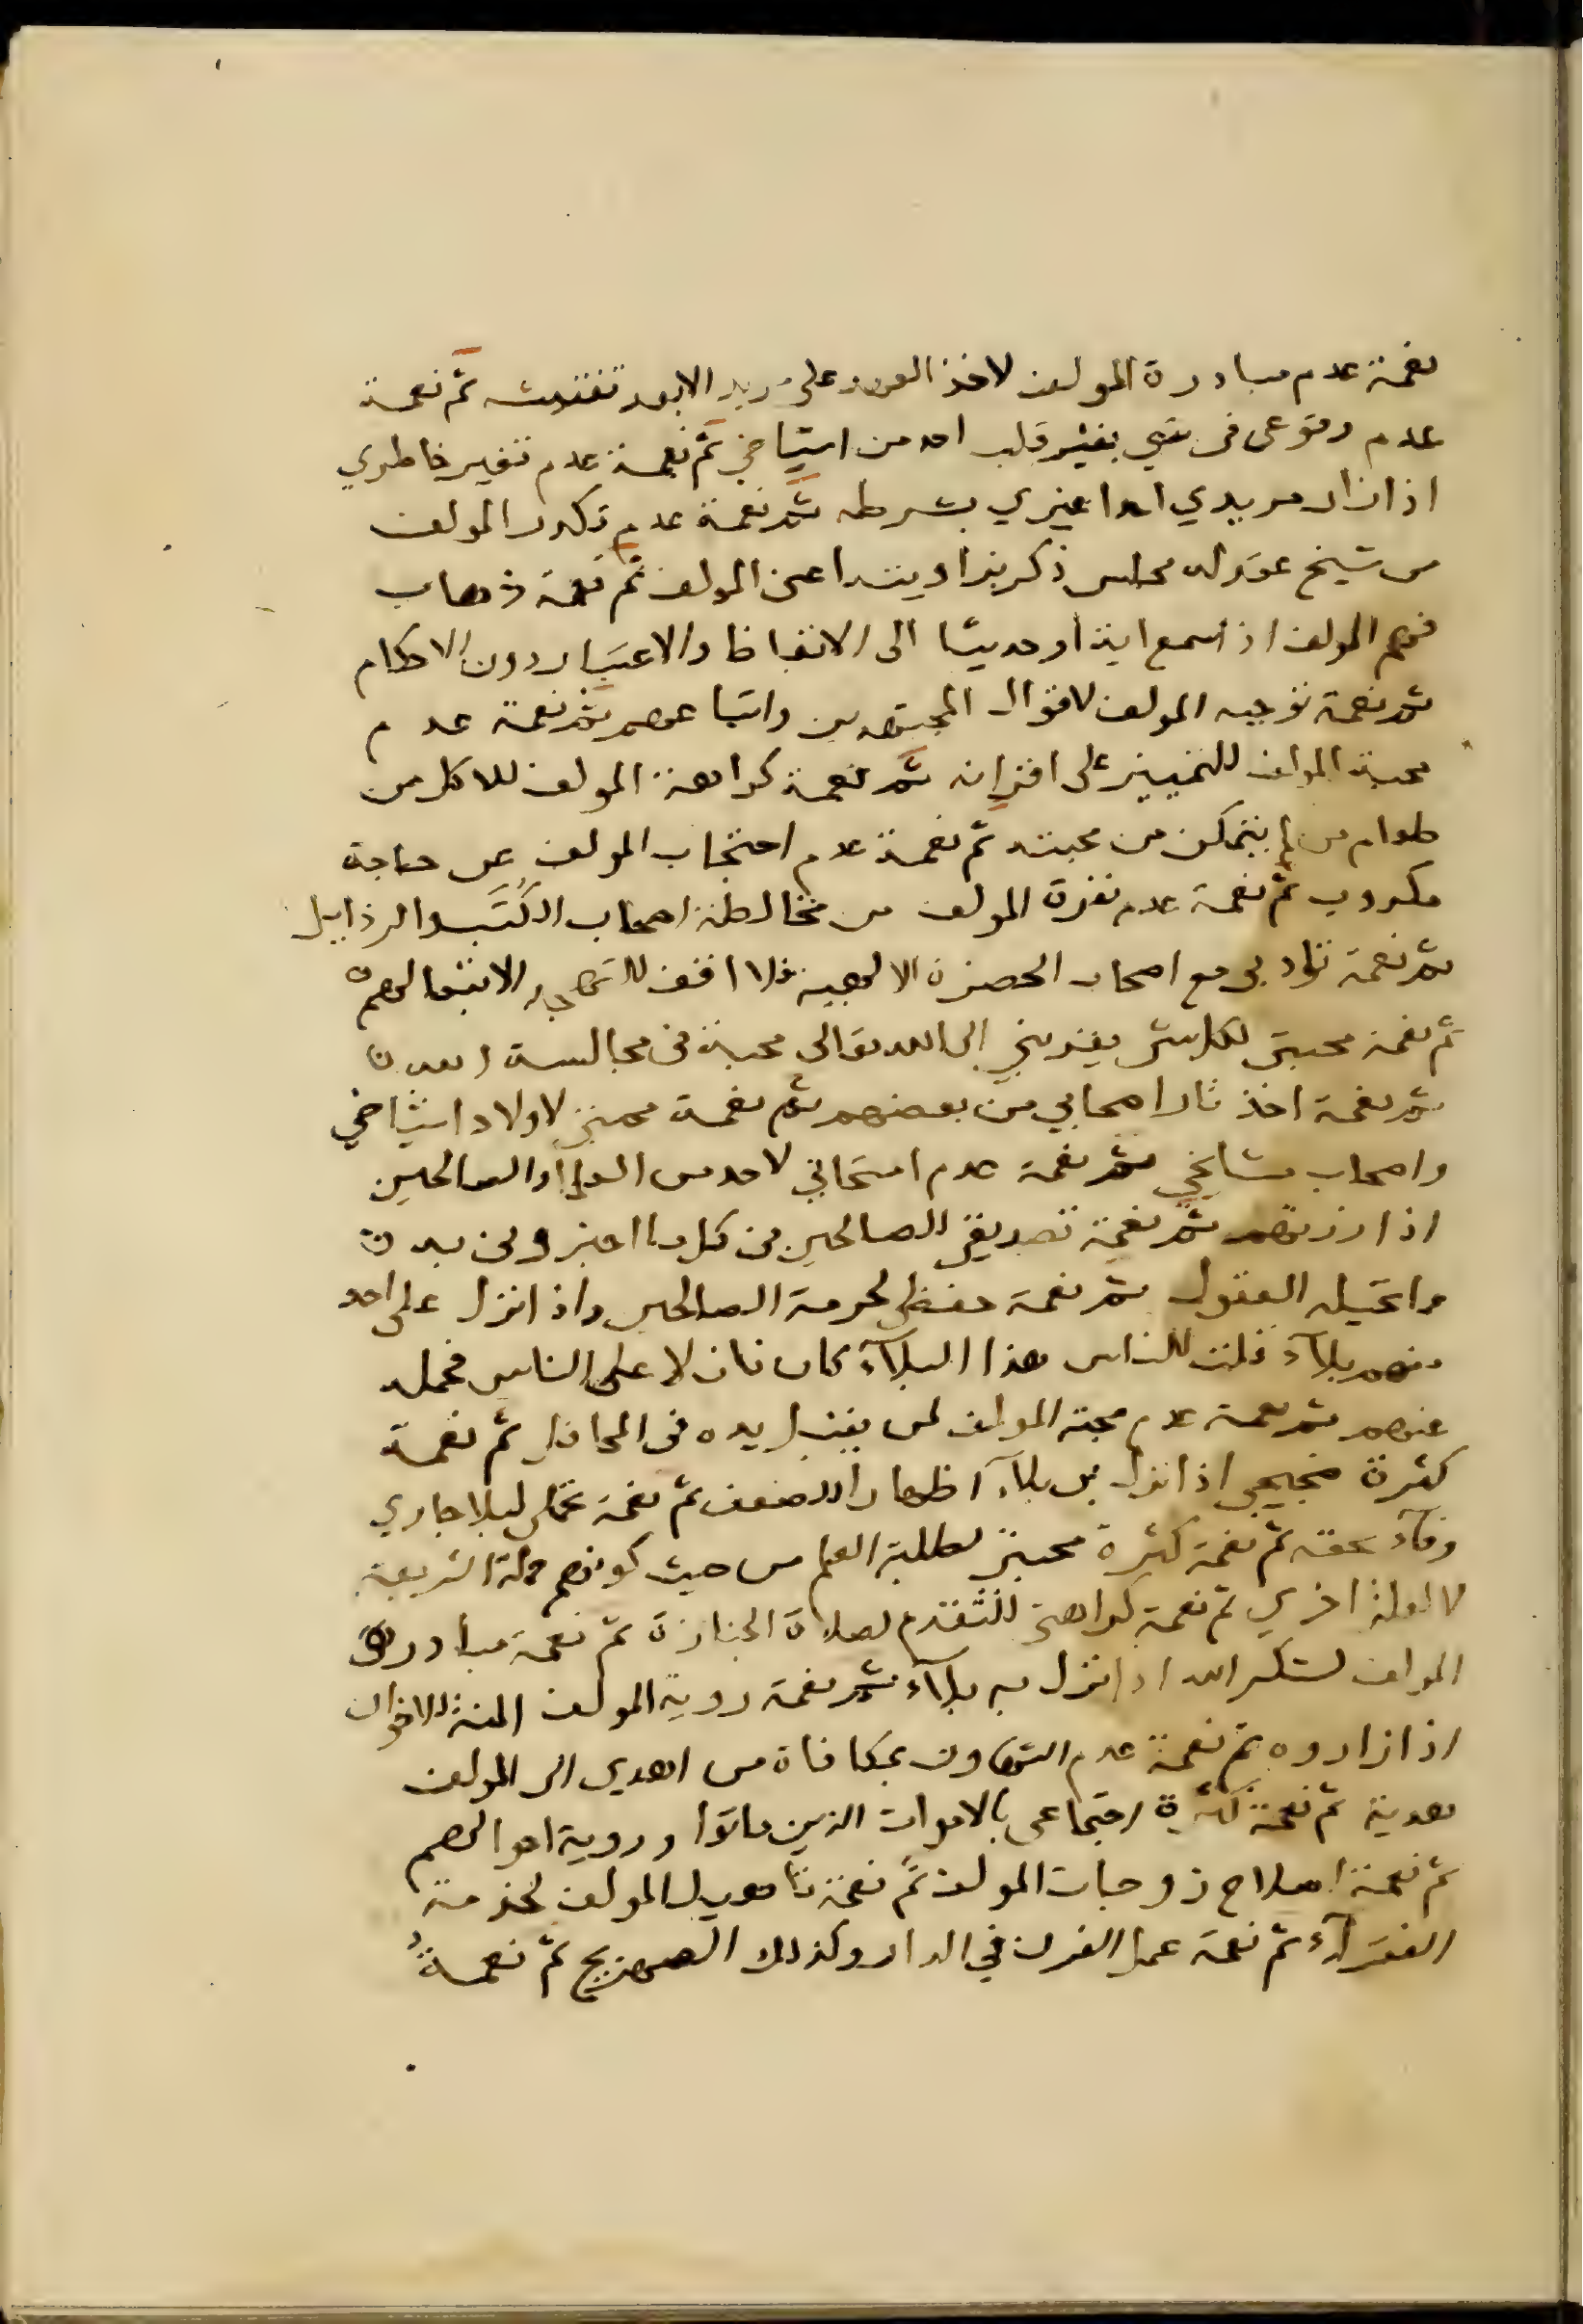 نعمة عدم مبادرة المولف لاخذ العهد على مريد الابعد تفتيش ثم نعمة
عدم وقوعى فى شي يغير قلب احد من اشياخي ثم نعمة عدم تغير خاطري
اذا زار مريدي احدا غيري بشرطه ثم نعمة عدم تكدر المولف
من شيخ عقد له مجلس ذكر بعيدا عن المولف ثم نعمة ذهاب
فهم المولف اذا سمع اية او حديثا الى الاتعاظ والاعتبار دون الاحكام
ثم نعمة توجيه المولف لاقوال المجتهدين واتباعهم ثم نعمة عدم
محبة المولف للتمييز على اقرانه ثم نعمة كراهة المولف للاكل من
طعام من لم يتمكن من محبته ثم نعمة عدم احتجاب المولف عن حاجة
مكروب ثم نعمة عدم نفرة المولف من مخالطة اصحاب الكتب والرذايل
ثم نعمة تادبى مع اصحاب الحضرة الالهية فلا اقف للتهجد الا تبعا لهم
ثم نعمة محبتى لكل شى يقربني الى الله تعالى محبة فى مجالسة
ثم نعمة اخذ ثار اصحابي من بعضهم ثم نعمة محبتي لاولاد اشياخي
واصحاب مشايخي ثم نعمة عدم امتحاني لاحد من العلماء والصالحين
اذا زرتهم ثم نعمة تصديقي الصالحين فى كل ما اخبروني به
وتحيله العقول ثم نعمة حفظي لحرمة الصالحين واذا نزل على احد
منهم بلاء قلت للناس هذا البلاء كان نازلا على الناس فحمله
عنهم ثم نعمة عدم محبة المولف لمن يقبل يده فى المحافل ثم نعمة
كثرة ضجيجى اذا نزل بى بلاء اظهارا للضعف ثم نعمة تحملى لبلا جاري
وفاء بحقه ثم نعمة كثرة محبتي لطلبة العلم من حيث كونهم حملة الشريعة
لا لعلة اخري ثم نعمة كراهتى للتقدم لصلاة الجنازة ثم نعمة مبادرة
المولف لشكر الله اذا نزل به بلاء ثم نعمة روية المولف المنة للاخوان
اذا زاروه ثم نعمة عدم التهاون بمكافاة من اهدى الى المولف
هدية ثم نعمة كثرة اجتماعى بالاموات الذين ماتوا وروية احوالهم
ثم نعمة اصلاح زوجات المولف ثم نعمة تاهيل المولف لخدمة
الفقراء ثم نعمة عمل الفرن في الدار وكذلك الصهريج ثم نعمة